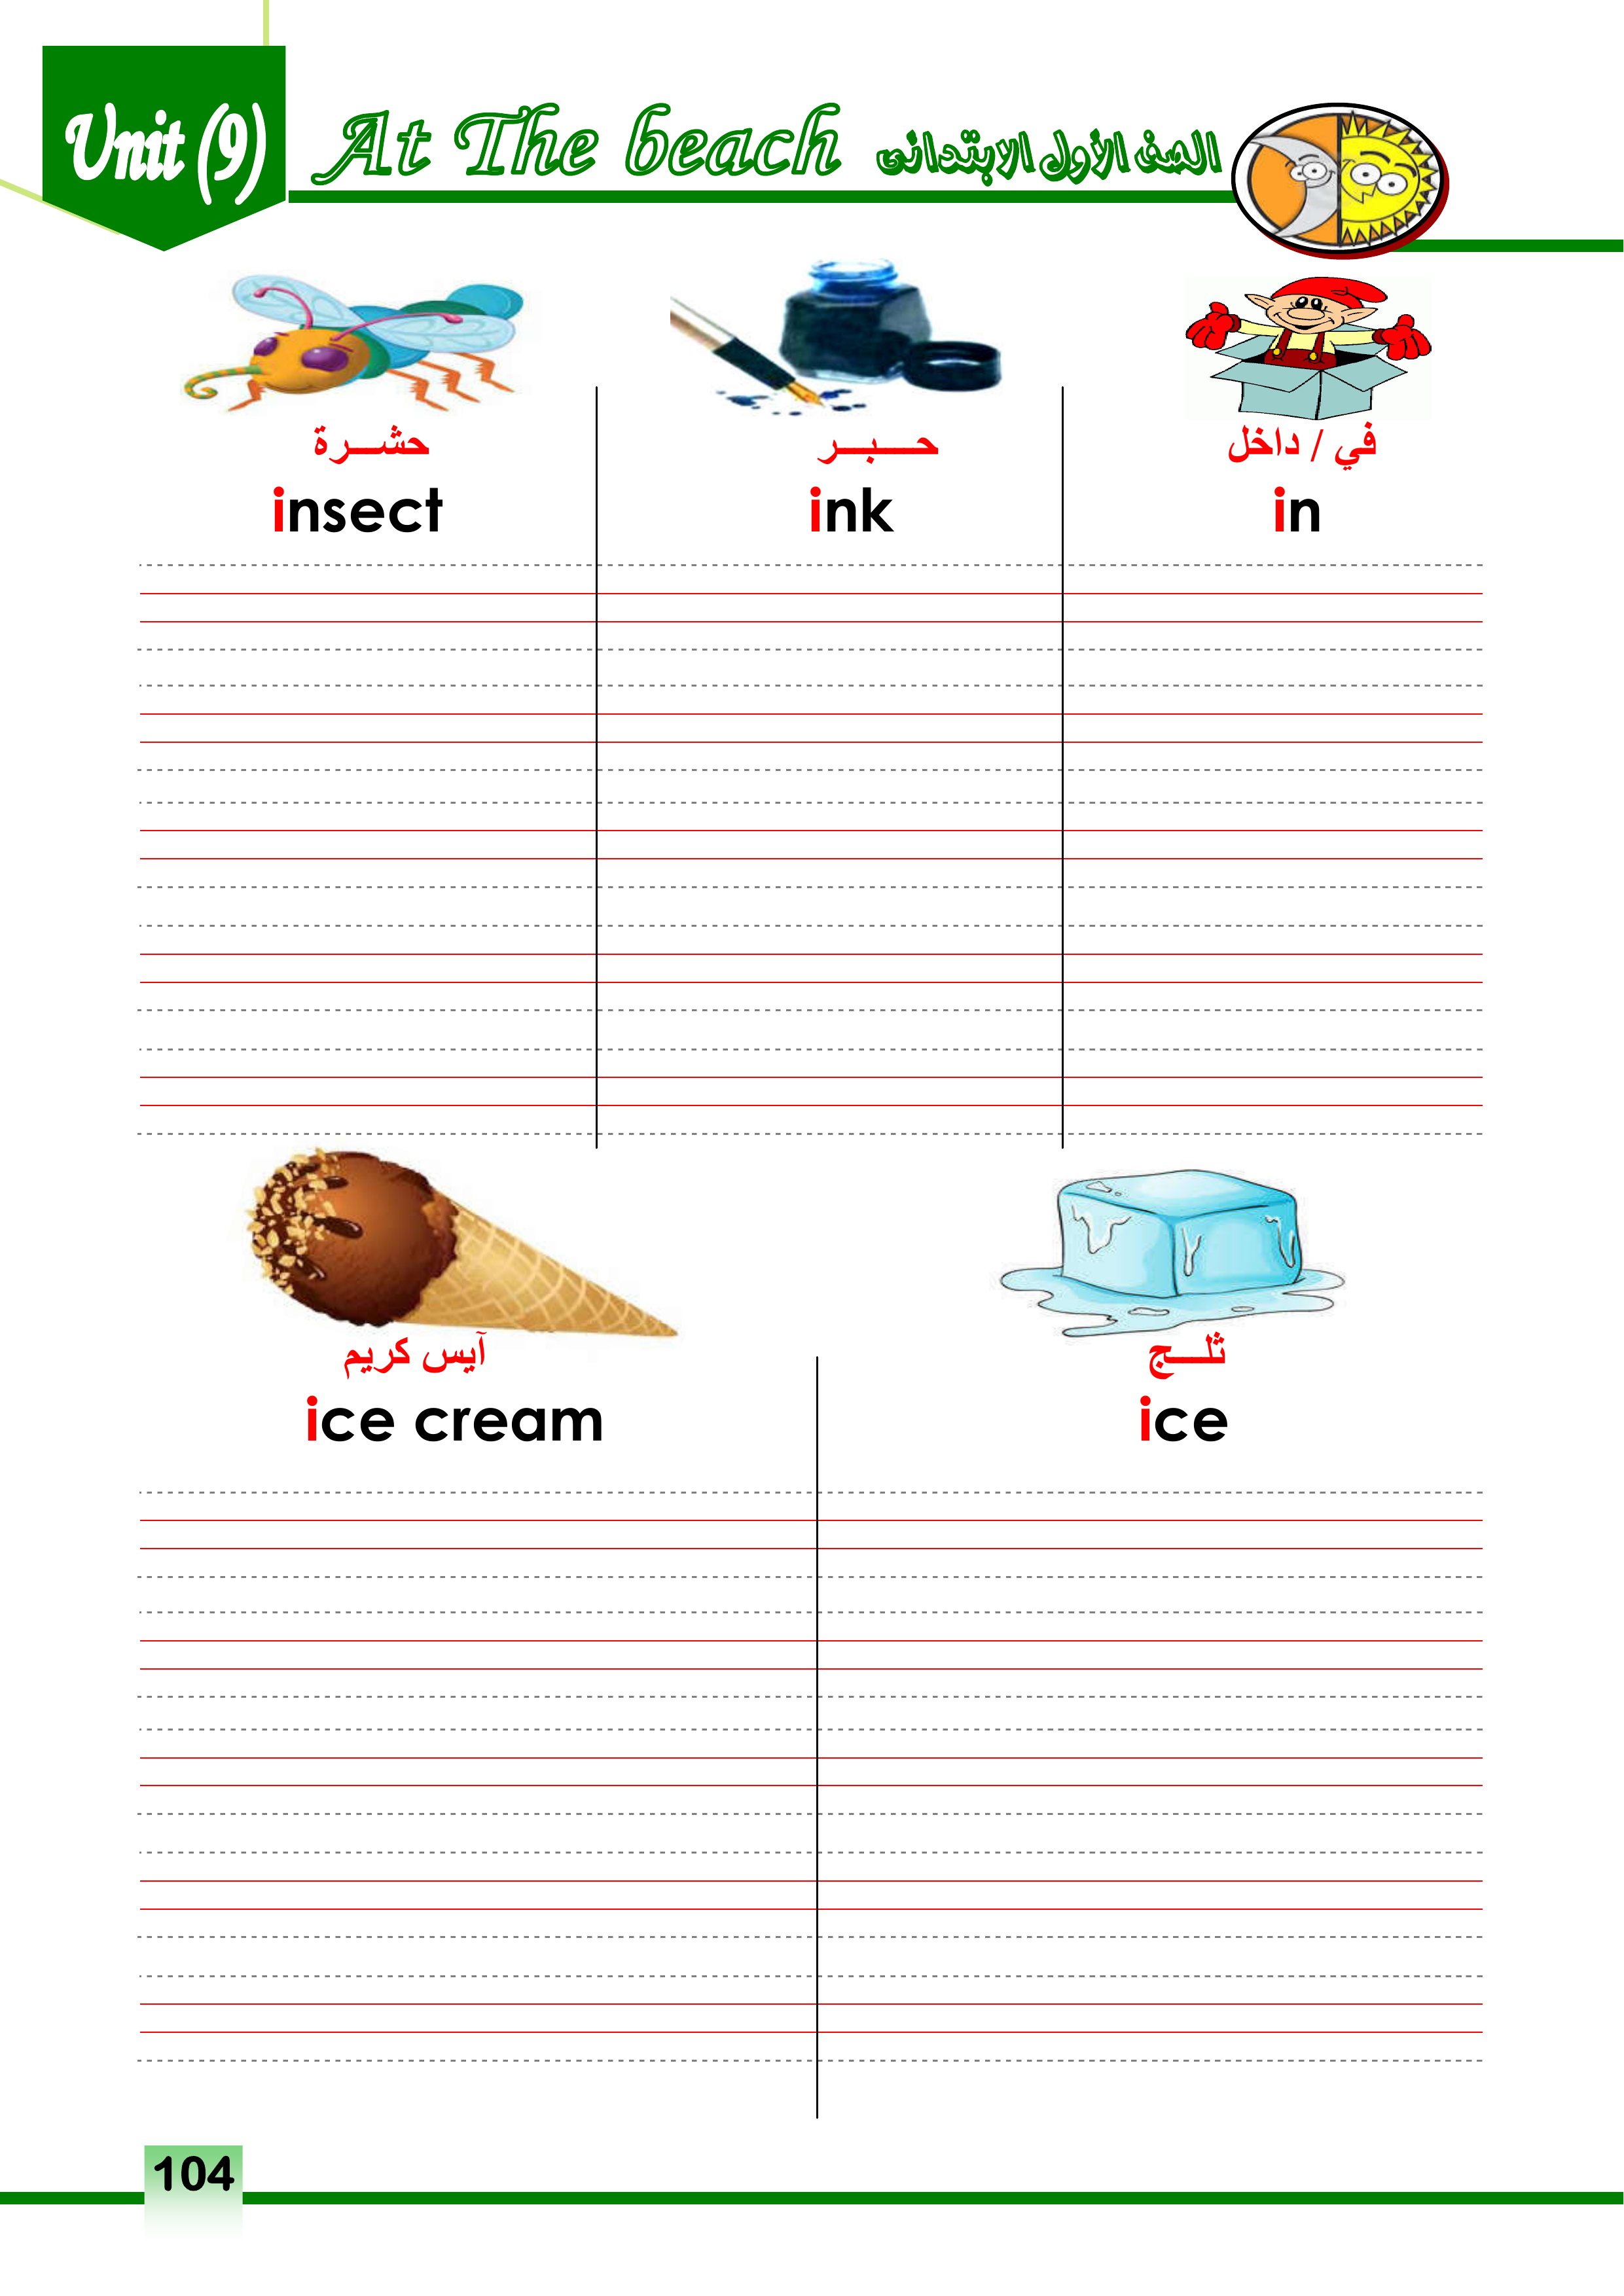 Unit (9)
At The beach الصف الأول الابتدائى
حشرة
insect
حبر
ink
في / داخل
in
آيس كريم
ice cream
ثلج
ice
104